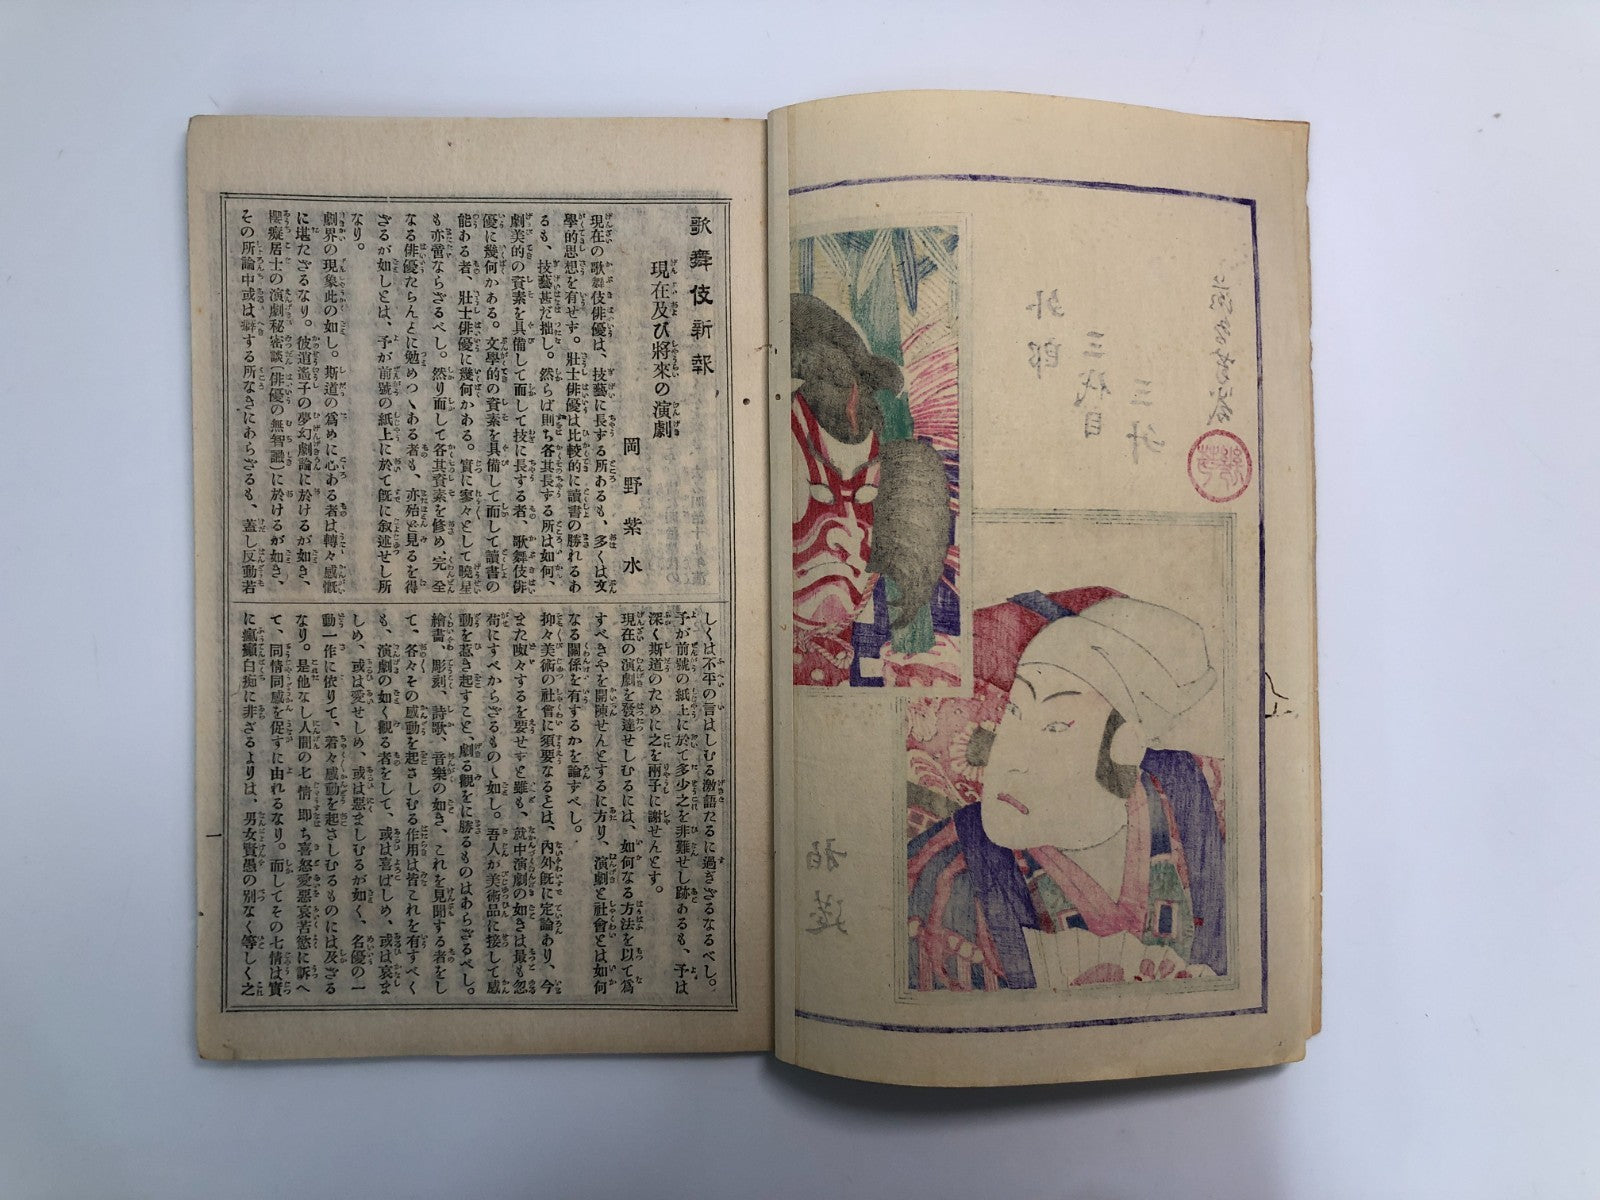 歌舞伎新報
現在及び將來の演劇
岡野紫水
現在の歌舞伎俳優は、技藝に長ずる所あるも、多くは文
學的思想を有せず。壯士俳優は比較的に讀書の勝れるあ
るも、技藝甚だ拙し。然らば則ち各其長ずる所は如何、
劇美的の資素を具備して而して技に長ずる者、歌舞伎俳
優に幾何かある。文學的の資素を具備して而して讀書の
能ある者、壯士俳優に幾何かある。實に寥々として曉星
も亦啻ならざるべし。然り而して各其資素を修め、完全
なる俳優たらんとに勉めつゝある者も、亦殆ど見るを得
ざるが如しとは、予が前號の紙上に於て旣に叙述せし所
なり。
劇界の現象此の如し。斯道の爲めに心ある者は轉々感慨
に堪たざるなり。彼逍遙子の夢幻劇論に於けるが如き、
櫻癡居士の演劇秘密談(俳優の無智譏)に於けるが如き、
その所論中或は僻する所なきにあらざるも、蓋し反動若
しくは不平の言はしむる激語たるに過ぎざるなるべし。
予が前號の紙上に於て多少之を非難せし跡あるも、予は
深く斯道のために之を兩子に謝せんとす。
現在の演劇を發達せしむるには、如何なる方法を以て爲
すべきやを開陳せんとするに方り、演劇と社會とは如何
なる關係を有するかを論ずべし。
抑々美術の社會に須要なるとは、內外旣に定論あり、今
また呶々するを要せずと雖も、就中演劇の如きは最も忽
荷にすべからざるものゝ如し。吾人が美術品に接して感
動を惹き起すこと、劇る觀をに勝るものはあらざるべし。
繪畫、彫刻、詩歌、音樂の如き、これを見聞する者をし
て、各々その感動を起さしむる作用は皆これを有すべく
も、演劇の如く觀る者をして、或は喜ばしめ、或は哀ま
しめ、或は愛せしめ、或は惡ましむるが如く、名優の一
動一作に依りて、若々感動を起さしむるものには及ざる
なり。是他なし人間の七情卽ち喜怒愛惡哀苦慾に訴へ
て、同情同感を促すに由れるなり。而してその七情は實
に瘋癲白痴に非ざるよりは、男女賢愚の別なく等しく之
外郎
三代目
三升